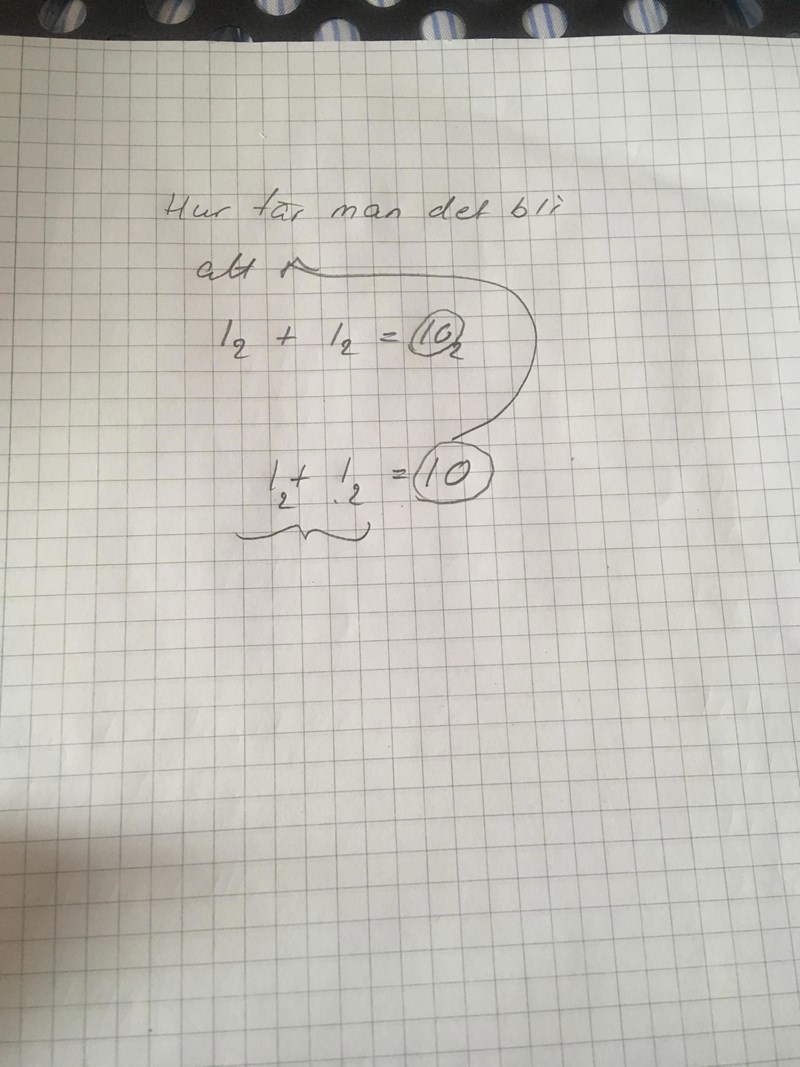 Hur får man det bli
alt
1₂ + 1₂ = 10₂
1₂ + 1₂ = 10